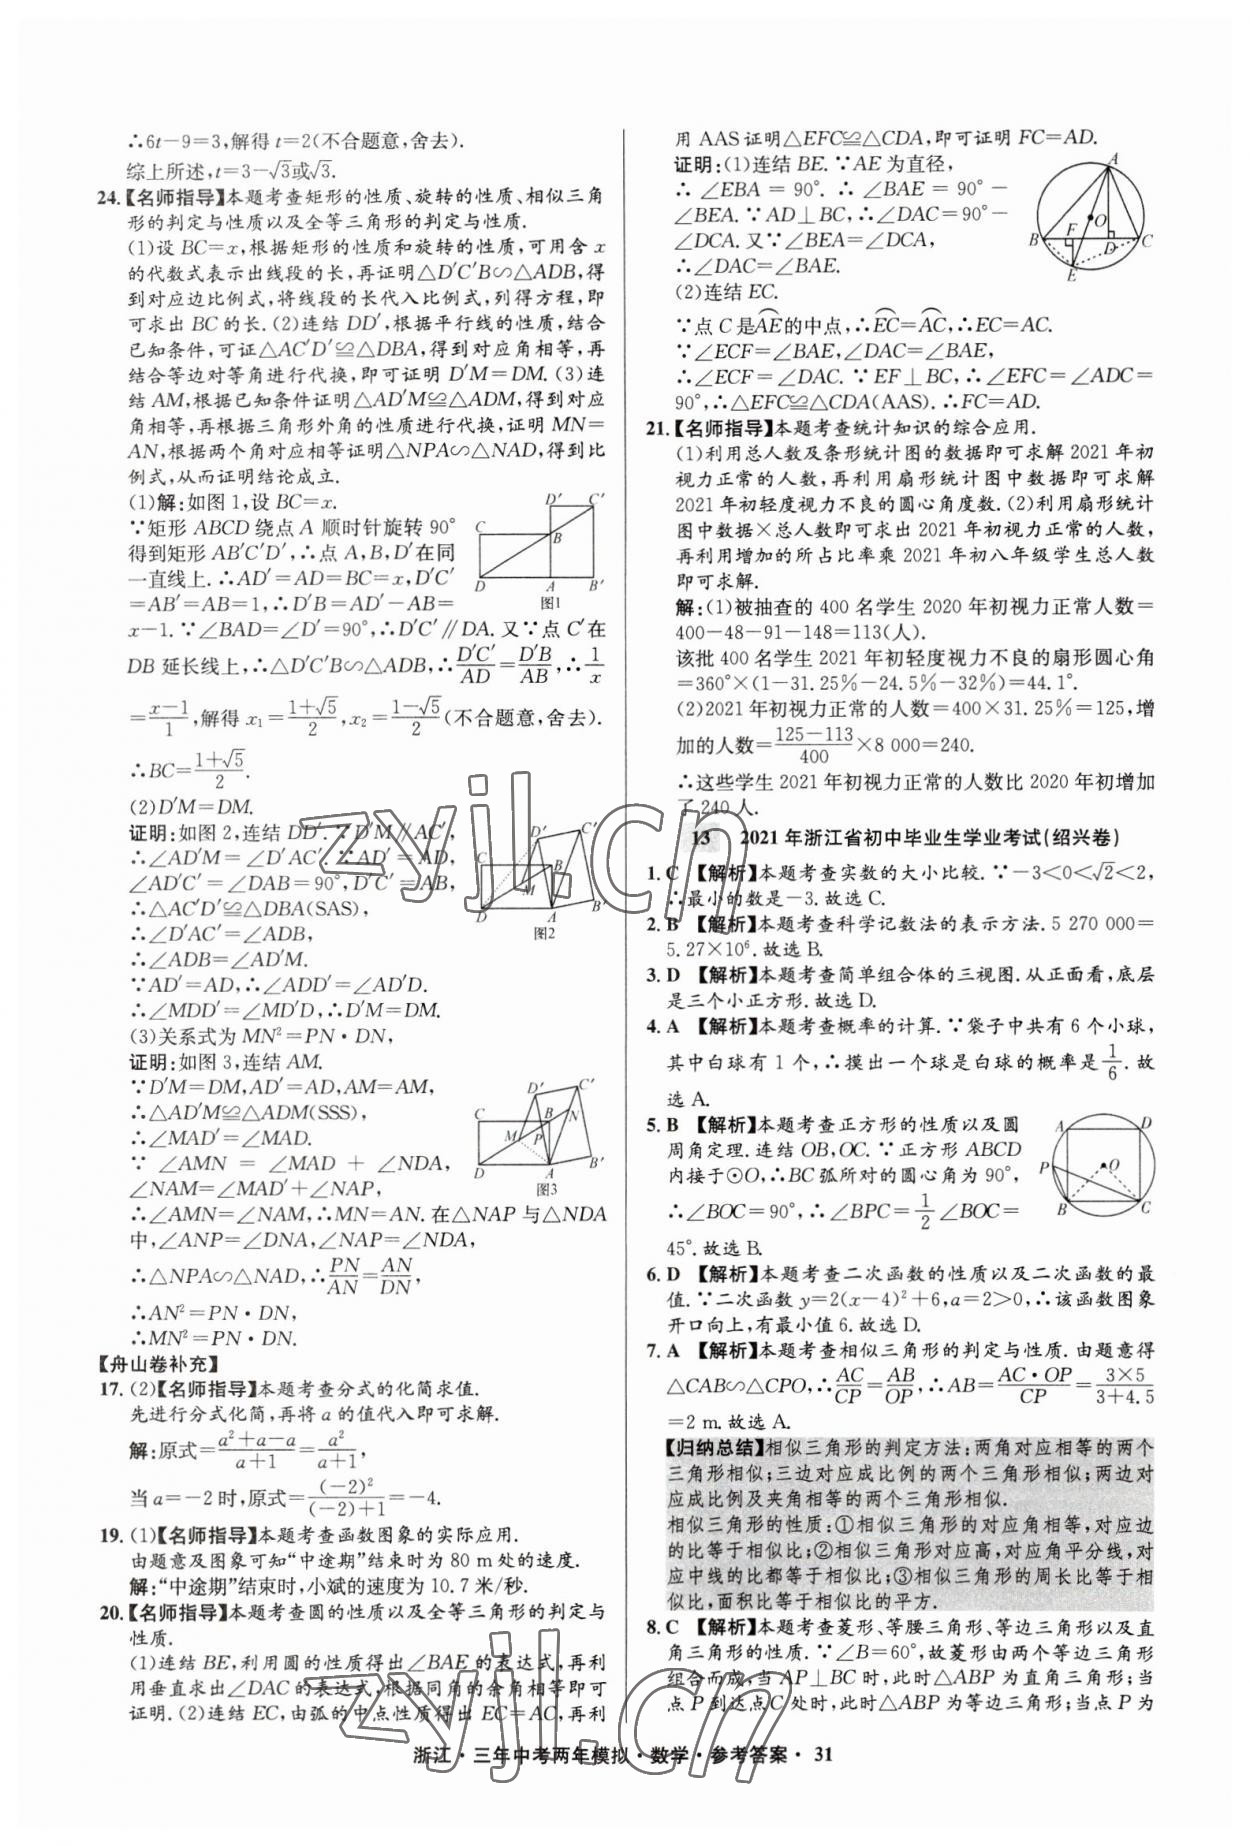 ∴6t−9=3,解得 t=2(不合题意,舍去).
综上所述,t=3−√3或√3.
24.【名师指导】本题考查矩形的性质、旋转的性质、相似三角
形的判定与性质以及全等三角形的判定与性质.
(1)设 BC=x,根据矩形的性质和旋转的性质,可用含 x
的代数式表示出线段的长,再证明△D′C′B∽△ADB,得
到对应边比例式,将线段的长代入比例式,列得方程,即
可求出 BC 的长.(2)连结 DD′,根据平行线的性质,结合
已知条件,可证△AC′D′≌△DBA,得到对应角相等,再
结合等边对等角进行代换,即可证明 D′M=DM.(3)连
结 AM,根据已知条件证明△AD′M≌△ADM,得到对应
角相等,再根据三角形外角的性质进行代换,证明 MN=
AN,根据两个角对应相等证明△NPA∽△NAD,得到比
例式,从而证明结论成立.
(1)解:如图 1,设 BC=x.
∵矩形 ABCD 绕点 A 顺时针旋转 90°
得到矩形 AB′C′D′,∴点 A,B,D′在同
一直线上.∴AD′=AD=BC=x,D′C′
=AB′=AB=1,∴D′B=AD′−AB=
x−1.∵∠BAD=∠D′=90°,∴D′C′∥DA.又∵点 C′在
DB 延长线上,∴△D′C′B∽△ADB,∴D′C′/AD=D′B/AB,∴1/x
=(x−1)/1,解得 x₁=(1+√5)/2,x₂=(1−√5)/2(不合题意,舍去).
∴BC=(1+√5)/2.
(2)D′M=DM.
证明:如图 2,连结 DD′.∵D′M∥AC′,
∴∠AD′M=∠D′AC′.∵AD′=AD,
∠AD′C′=∠DAB=90°,D′C′=AB,
∴△AC′D′≌△DBA(SAS),
∴∠D′AC′=∠ADB,
∴∠ADB=∠AD′M.
∵AD′=AD,∴∠ADD′=∠AD′D.
∴∠MDD′=∠MD′D,∴D′M=DM.
(3)关系式为 MN²=PN·DN,
证明:如图 3,连结 AM.
∵D′M=DM,AD′=AD,AM=AM,
∴△AD′M≌△ADM(SSS),
∴∠MAD′=∠MAD.
∵∠AMN=∠MAD+∠NDA,
∠NAM=∠MAD′+∠NAP,
∴∠AMN=∠NAM,∴MN=AN.在△NAP 与△NDA
中,∠ANP=∠DNA,∠NAP=∠NDA,
∴△NPA∽△NAD,∴PN/AN=AN/DN,
∴AN²=PN·DN,
∴MN²=PN·DN.
D′ C′ C B D A B′
图1
D′ C′ C B M D A B′
图2
D′ C′ C B N M P D A B′
图3
【舟山卷补充】
17.(2)【名师指导】本题考查分式的化简求值.
先进行分式化简,再将 a 的值代入即可求解.
解:原式=(a²+a−a)/(a+1)=a²/(a+1),
当 a=−2 时,原式=(−2)²/((−2)+1)=−4.
19.(1)【名师指导】本题考查函数图象的实际应用.
由题意及图象可知“中途期”结束时为 80 m 处的速度.
解:“中途期”结束时,小斌的速度为 10.7 米/秒.
20.【名师指导】本题考查圆的性质以及全等三角形的判定与
性质.
(1)连结 BE,利用圆的性质得出∠BAE 的表达式,再利
用垂直求出∠DAC 的表达式,根据同角的余角相等即可
证明.(2)连结 EC,由弧的中点性质得出 EC=AC,再利
用 AAS 证明△EFC≌△CDA,即可证明 FC=AD.
证明:(1)连结 BE.∵AE 为直径,
∴∠EBA=90°.∴∠BAE=90°−
∠BEA.∵AD⊥BC,∴∠DAC=90°−
∠DCA.又∵∠BEA=∠DCA,
∴∠DAC=∠BAE.
(2)连结 EC.
∵点 C 是AE的中点,∴EC=AC,∴EC=AC.
∵∠ECF=∠BAE,∠DAC=∠BAE,
∴∠ECF=∠DAC.∵EF⊥BC,∴∠EFC=∠ADC=
90°,∴△EFC≌△CDA(AAS).∴FC=AD.
A O F B D C E
21.【名师指导】本题考查统计知识的综合应用.
(1)利用总人数及条形统计图的数据即可求解 2021 年初
视力正常的人数,再利用扇形统计图中数据即可求解
2021 年初轻度视力不良的圆心角度数.(2)利用扇形统计
图中数据×总人数即可求出 2021 年初视力正常的人数,
再利用增加的所占比率乘 2021 年初八年级学生总人数
即可求解.
解:(1)被抽查的 400 名学生 2020 年初视力正常人数=
400−48−91−148=113(人).
该批 400 名学生 2021 年初轻度视力不良的扇形圆心角
=360°×(1−31.25%−24.5%−32%)=44.1°.
(2)2021 年初视力正常的人数=400×31.25%=125,增
加的人数=(125−113)/400×8 000=240.
∴这些学生 2021 年初视力正常的人数比 2020 年初增加
了 240 人.
13 2021 年浙江省初中毕业生学业考试(绍兴卷)
1. C 【解析】本题考查实数的大小比较.∵−3<0<√2<2,
∴最小的数是−3.故选 C.
2. B 【解析】本题考查科学记数法的表示方法.5 270 000=
5.27×10⁶.故选 B.
3. D 【解析】本题考查简单组合体的三视图.从正面看,底层
是三个小正方形.故选 D.
4. A 【解析】本题考查概率的计算.∵袋子中共有 6 个小球,
其中白球有 1 个,∴摸出一个球是白球的概率是1/6.故
选 A.
5. B 【解析】本题考查正方形的性质以及圆
周角定理.连结 OB,OC.∵正方形 ABCD
内接于⊙O,∴BC 弧所对的圆心角为 90°,
∴∠BOC=90°,∴∠BPC=1/2∠BOC=
45°.故选 B.
A D P O B C
6. D 【解析】本题考查二次函数的性质以及二次函数的最
值.∵二次函数 y=2(x−4)²+6,a=2>0,∴该函数图象
开口向上,有最小值 6.故选 D.
7. A 【解析】本题考查相似三角形的判定与性质.由题意得
△CAB∽△CPO,∴AC/CP=AB/OP,∴AB=AC·OP/CP=3×5/(3+4.5)
=2 m.故选 A.
【归纳总结】相似三角形的判定方法:两角对应相等的两个
三角形相似;三边对应成比例的两个三角形相似;两边对
应成比例及夹角相等的两个三角形相似.
相似三角形的性质:①相似三角形的对应角相等,对应边
的比等于相似比;②相似三角形对应高,对应角平分线,对
应中线的比都等于相似比;③相似三角形的周长比等于相
似比,面积比等于相似比的平方.
8. C 【解析】本题考查菱形、等腰三角形、等边三角形以及直
角三角形的性质.∵∠B=60°,故菱形由两个等边三角形
组合而成,当 AP⊥BC 时,此时△ABP 为直角三角形;当
点 P 到达点C 处时,此时△ABP 为等边三角形;当点 P 为
浙江·三年中考两年模拟·数学·参考答案· 31
zyjl.cn
zyjl.cn